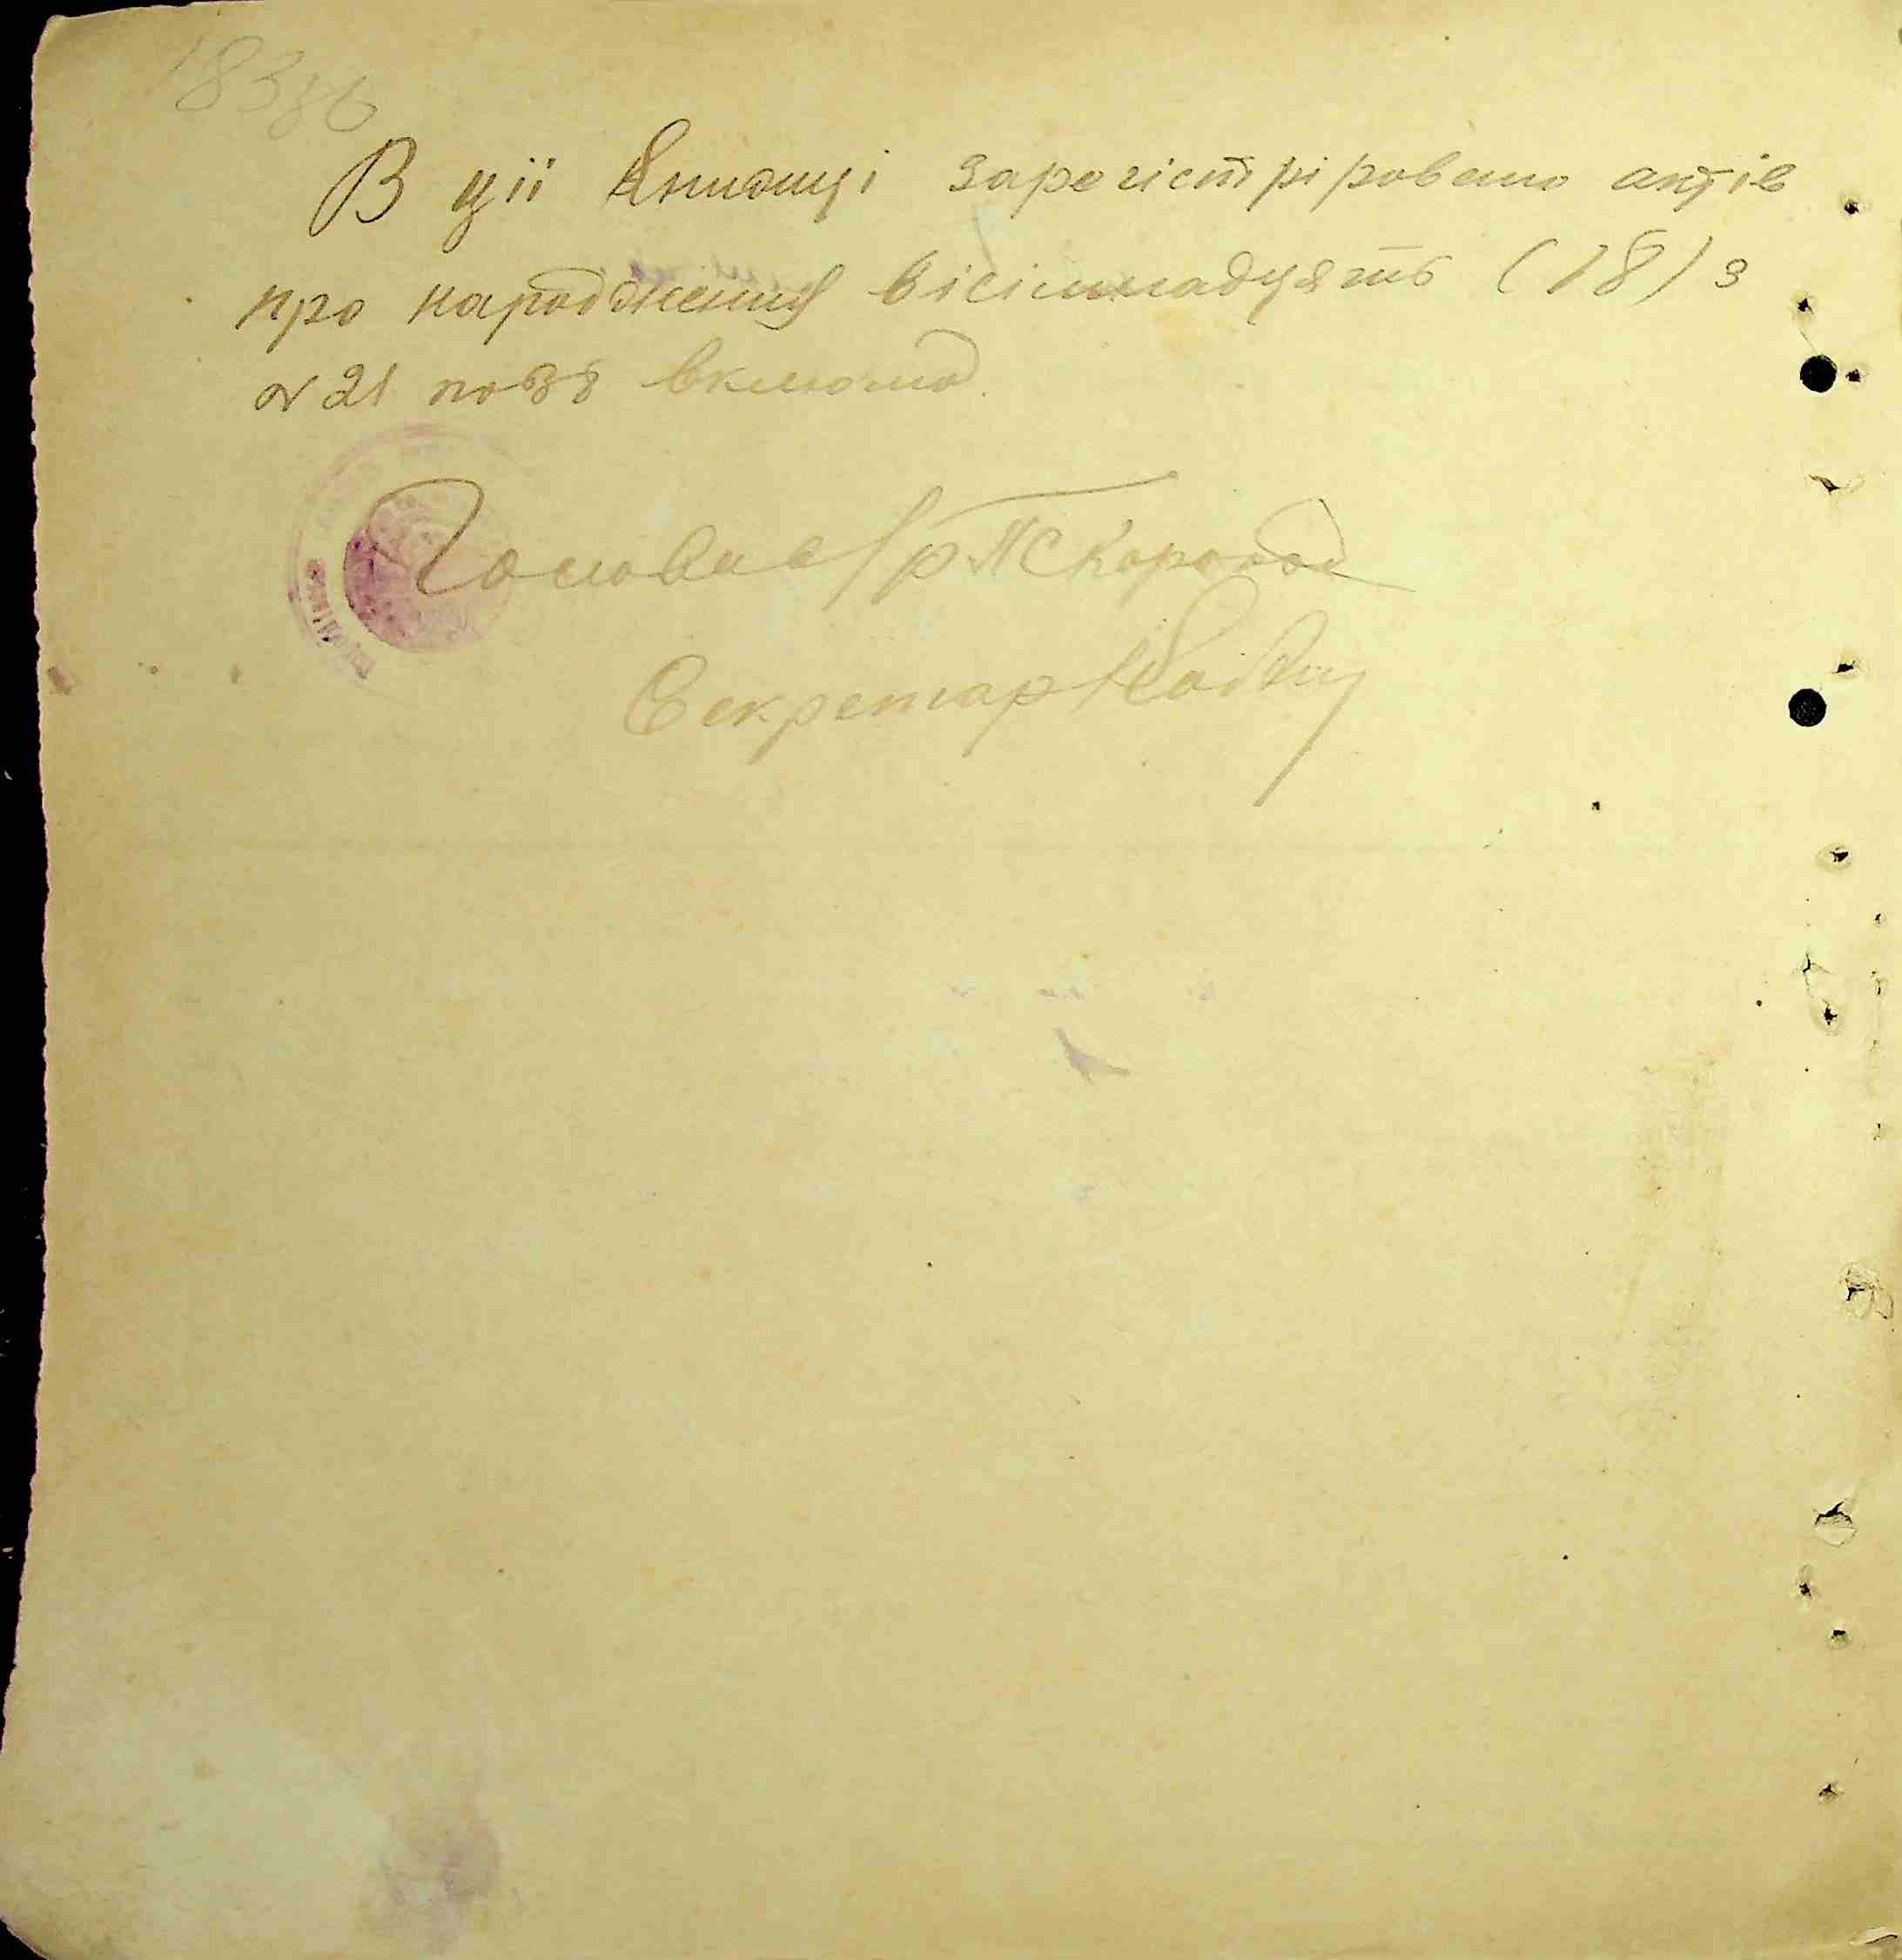 В ції книжці зарегістріровано актів
про народження вісімнадцять (18) з
№ 21 по 38 включно.
Голова с/р
Секретар